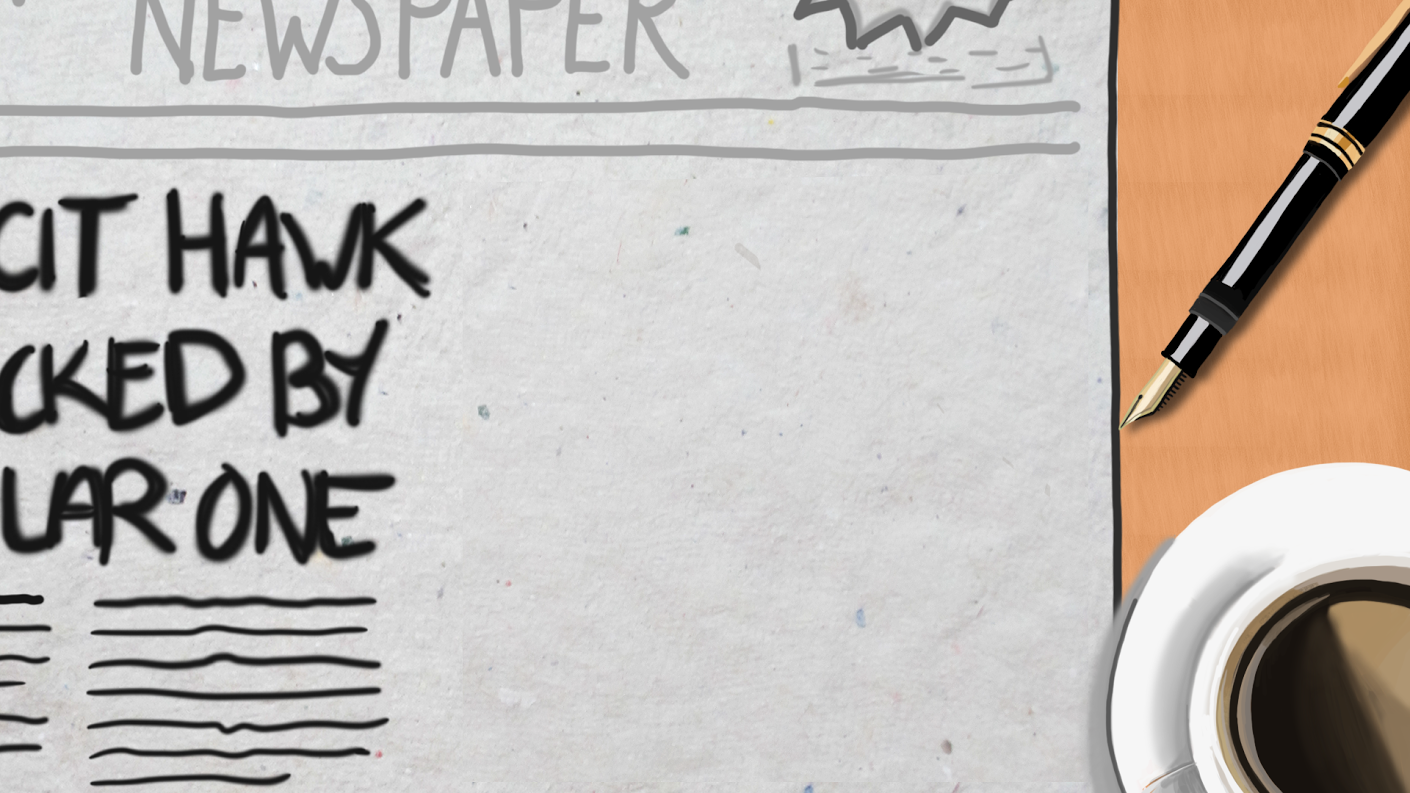 NEWSPAPER
CIT HAWK
CKED BY
LAR ONE